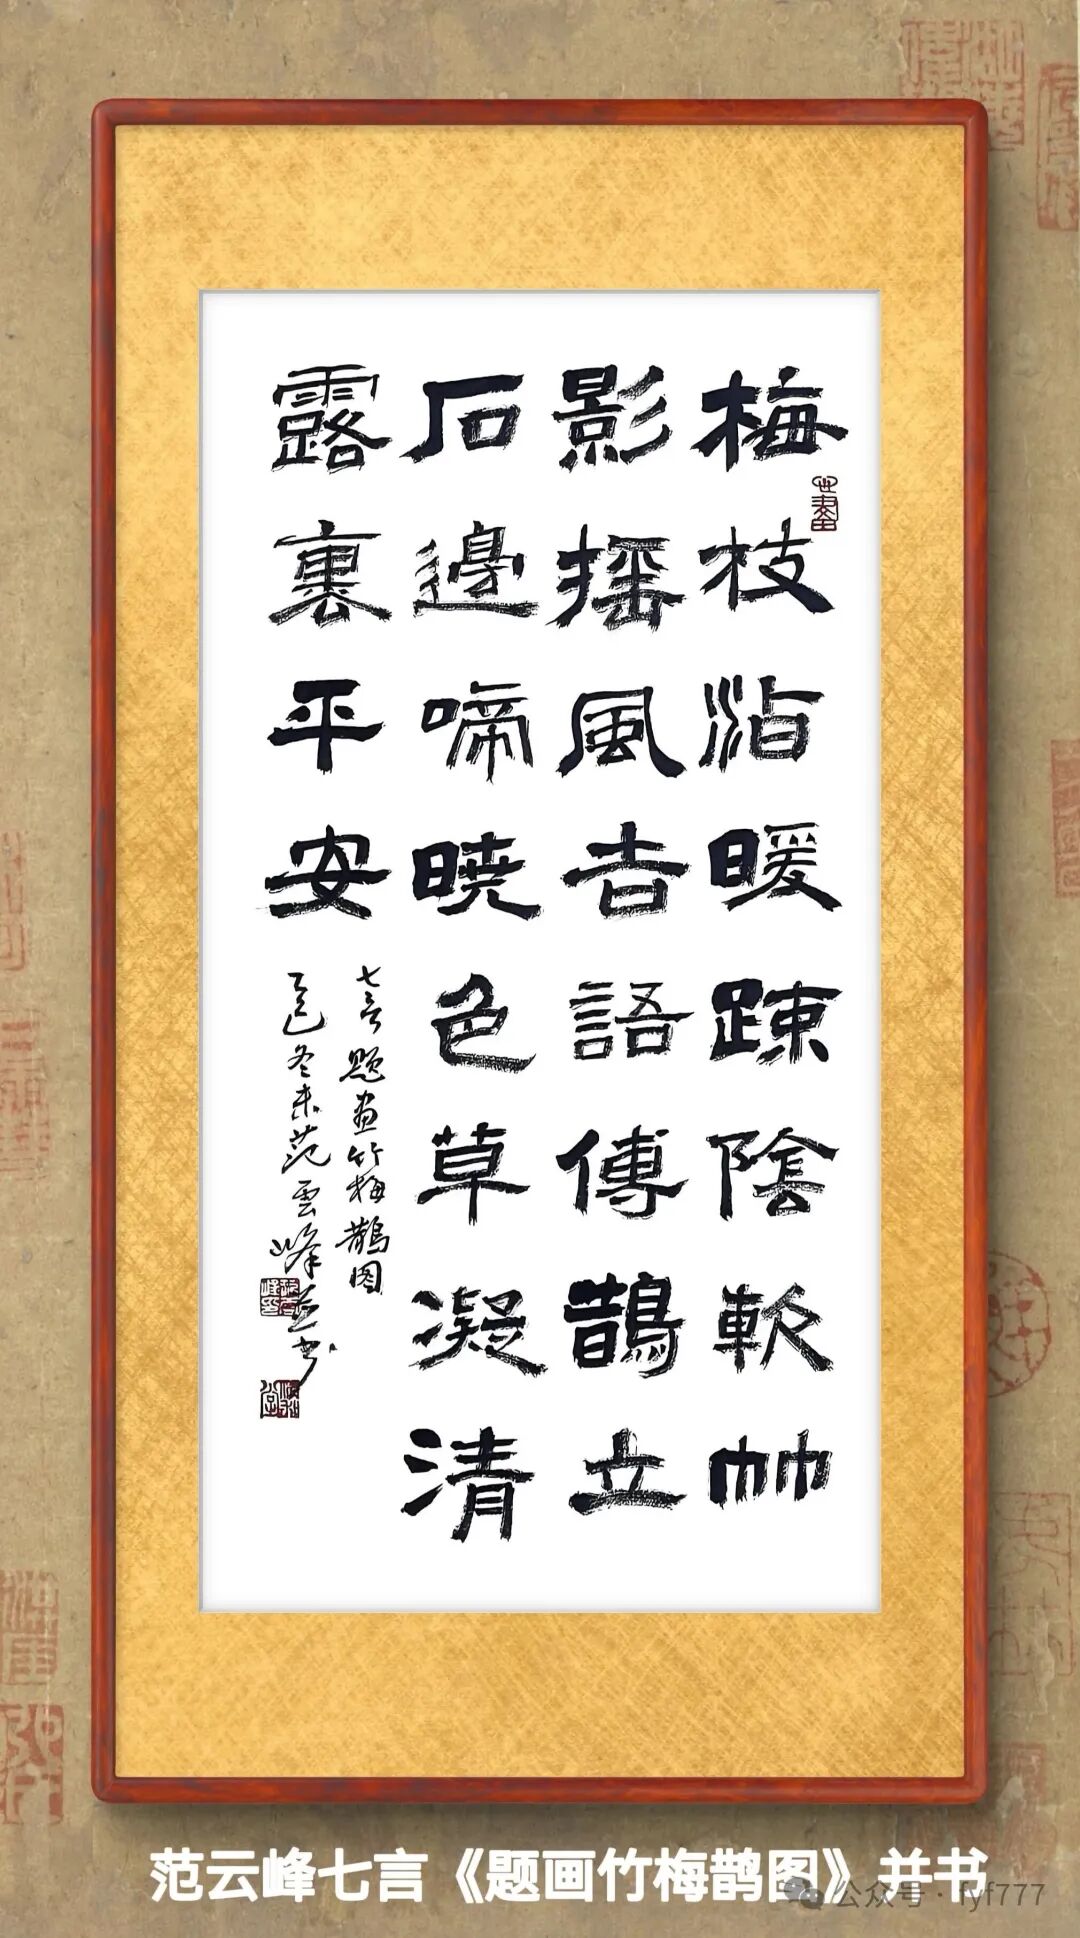 梅枝沾暖踈陰軟竹
影摇風吉語傳鵲立
石邊啼曉色草凝清
露裏平安
七言题画竹梅鵲图
乙巳冬末范雲峰并书
范云峰七言《题画竹梅鹊图》并书
公众号·fyf777